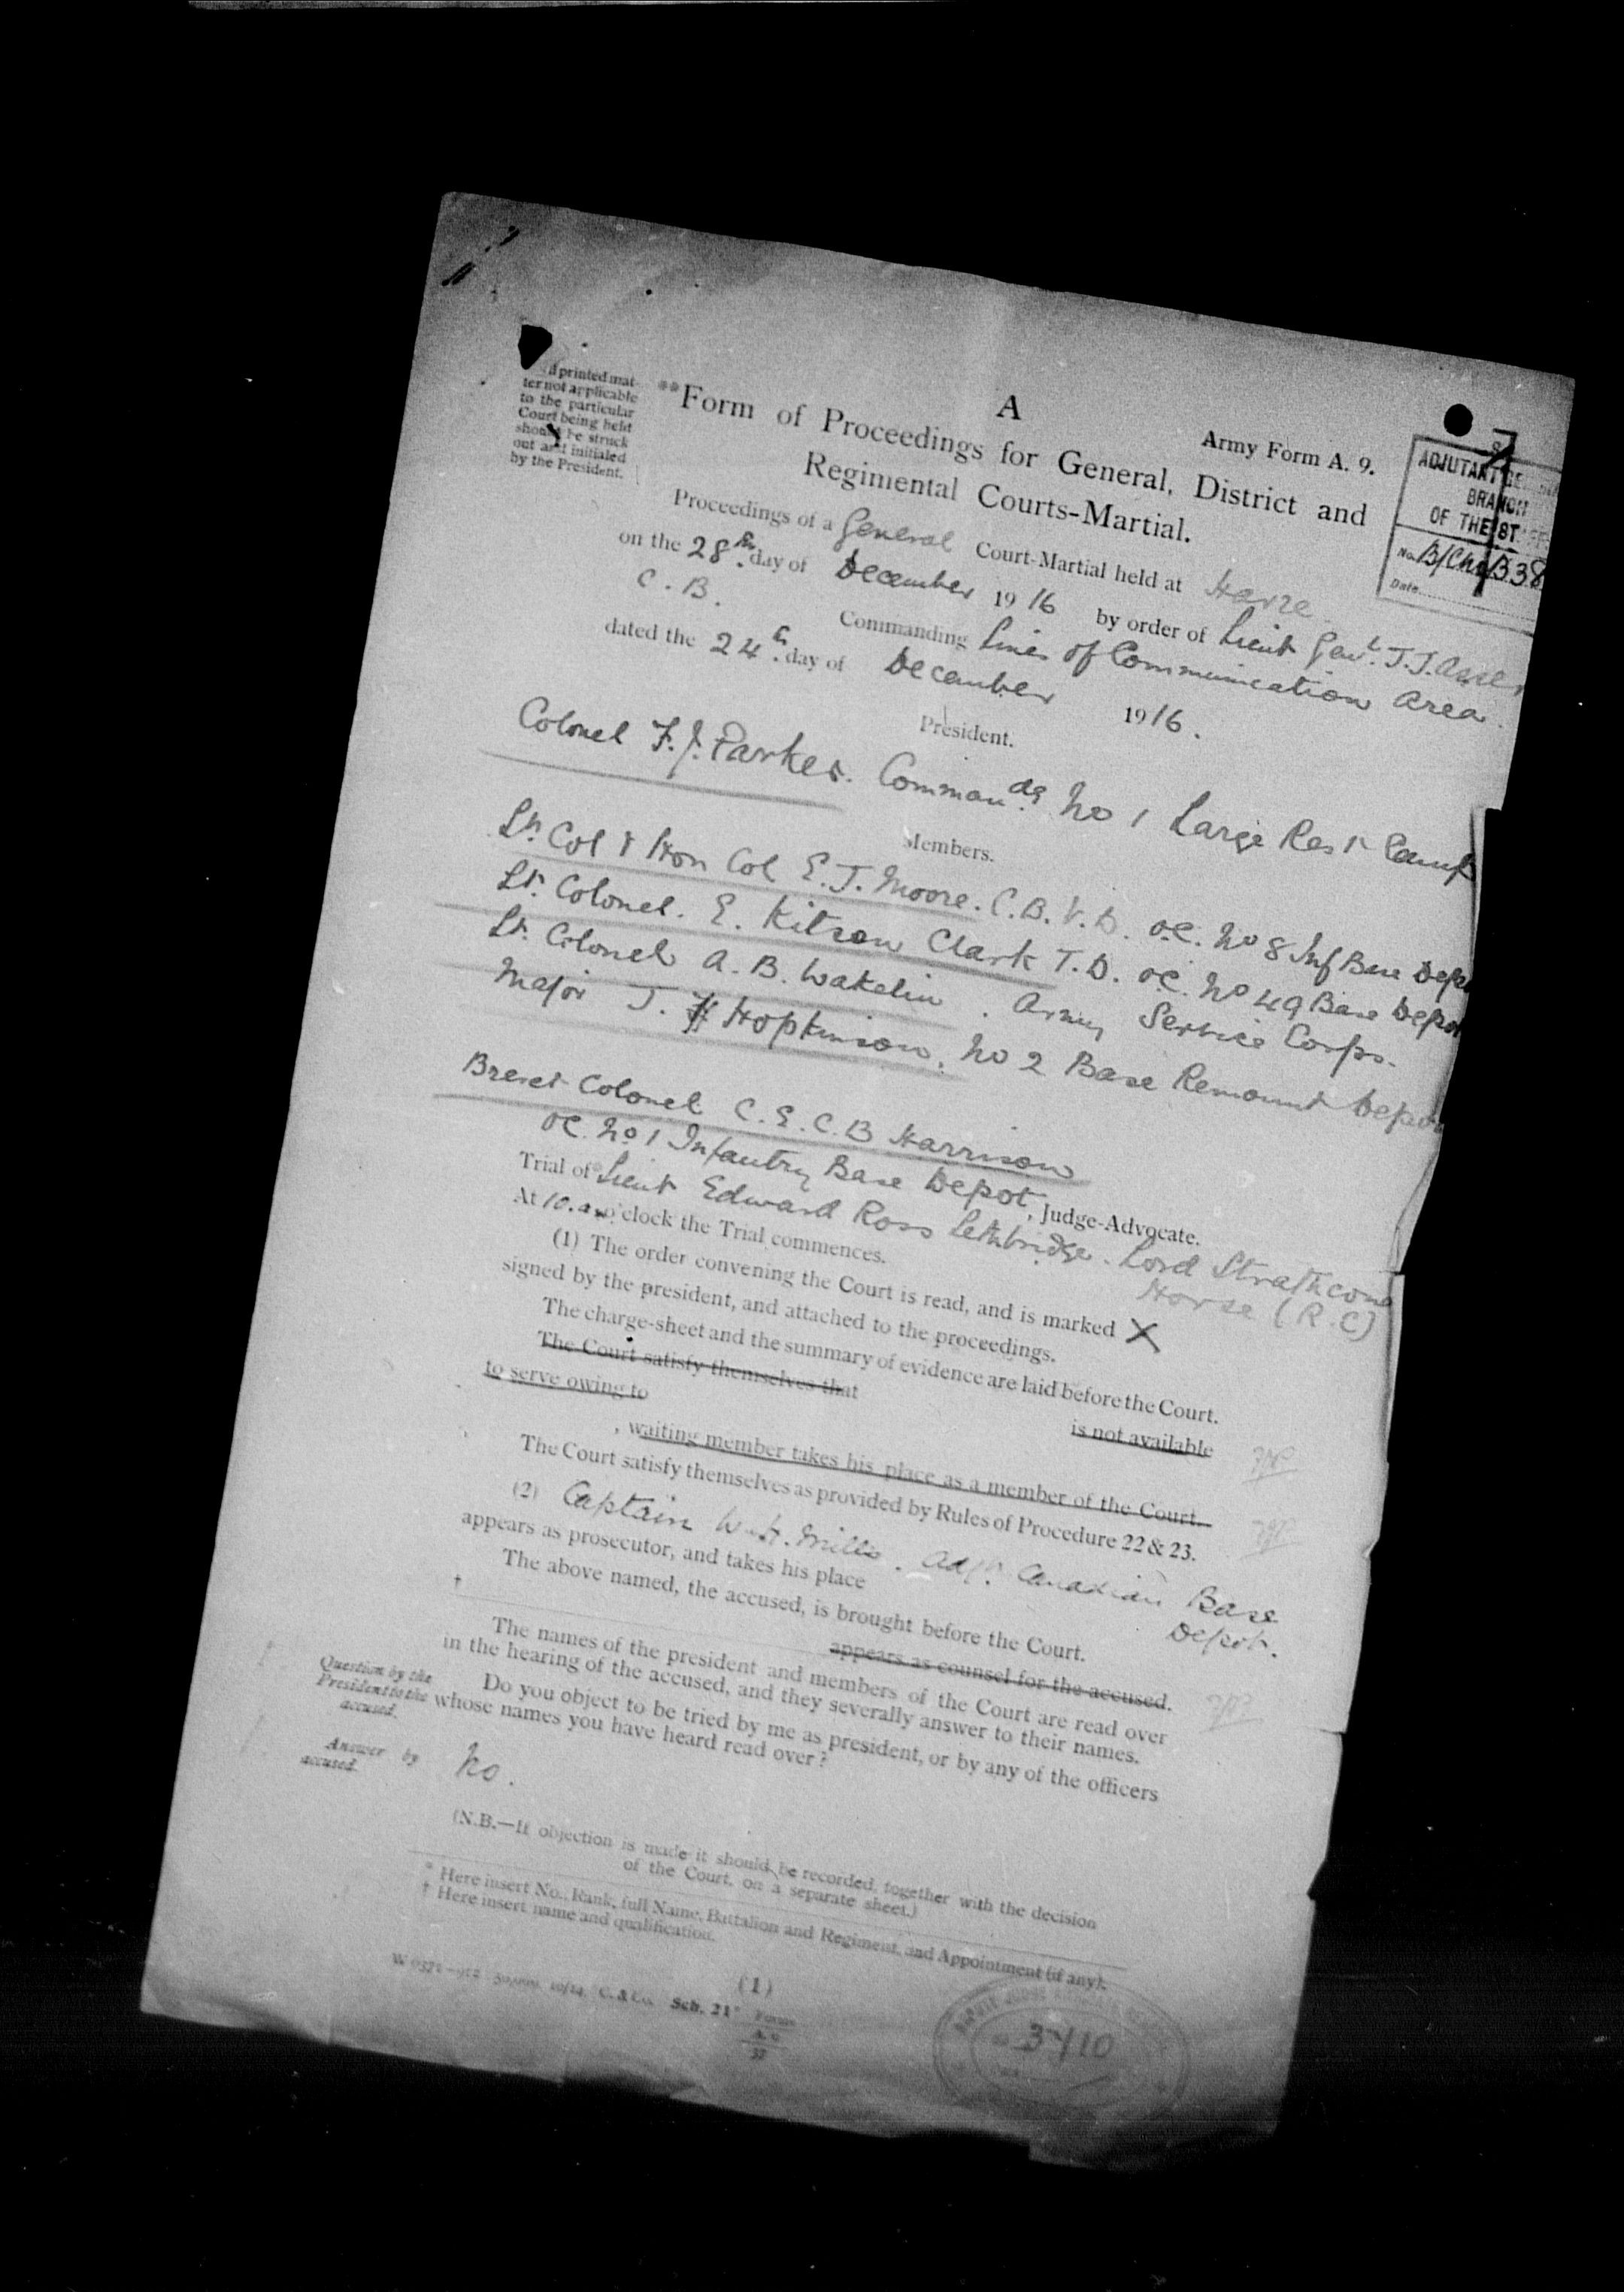 A
Army Form A. 9.
ADJUTANT GE
BRANCH
OF THE ST
No. B/Cha/B38
Date
d printed mat-
ter not applicable
to the particular
Court being held
should be struck
out and initialed
by the President.
**Form of Proceedings for General, District and
Regimental Courts-Martial.
Proceedings of a General Court-Martial held at Havre
on the 28th day of December 1916 by order of Lieut Genl. J.J. Asser
C.B. Commanding Lines of Communication Area.
dated the 24th day of December 1916.
President.
Colonel F.J. Parker. Commandg No 1 Large Rest Camp
Members.
Lt. Col & Hon Col E.J. Moore. C.B. V.D. OC. No 8 Inf Base Depo
Lt. Colonel. E. Kitson Clark T.D. OC. No 49 Base Depot
Lt. Colonel A.B. Wakelin. Army Service Corps.
Major J. H Hopkinson. No 2 Base Remount Depot
Brevet Colonel C.E.C.B Harrison
OC. No 1 Infantry Base Depot, Judge-Advocate.
Trial of* Lieut Edward Ross Lethbridge. Lord Strathcona
Horse (R.C)
At 10. a.m o'clock the Trial commences.
(1) The order convening the Court is read, and is marked X
signed by the president, and attached to the proceedings.
The charge-sheet and the summary of evidence are laid before the Court.
The Court satisfy themselves that is not available
to serve owing to
, waiting member takes his place as a member of the Court.
The Court satisfy themselves as provided by Rules of Procedure 22 & 23.
(2) Captain W.H. Mills. Adjt. Canadian Base
Depot.
appears as prosecutor, and takes his place
The above named, the accused, is brought before the Court.
† appears as counsel for the accused.
The names of the president and members of the Court are read over
in the hearing of the accused, and they severally answer to their names.
Question by the
President to the
accused.
Do you object to be tried by me as president, or by any of the officers
whose names you have heard read over?
Answer by
accused.
No.
(N.B.—If objection is made it should be recorded, together with the decision
of the Court, on a separate sheet.)
* Here insert No., Rank, full Name, Battalion and Regiment, and Appointment (if any).
† Here insert name and qualification.
(1)
10/14 C. & Co. Sch. 21 Forms
A. 9
37
3410